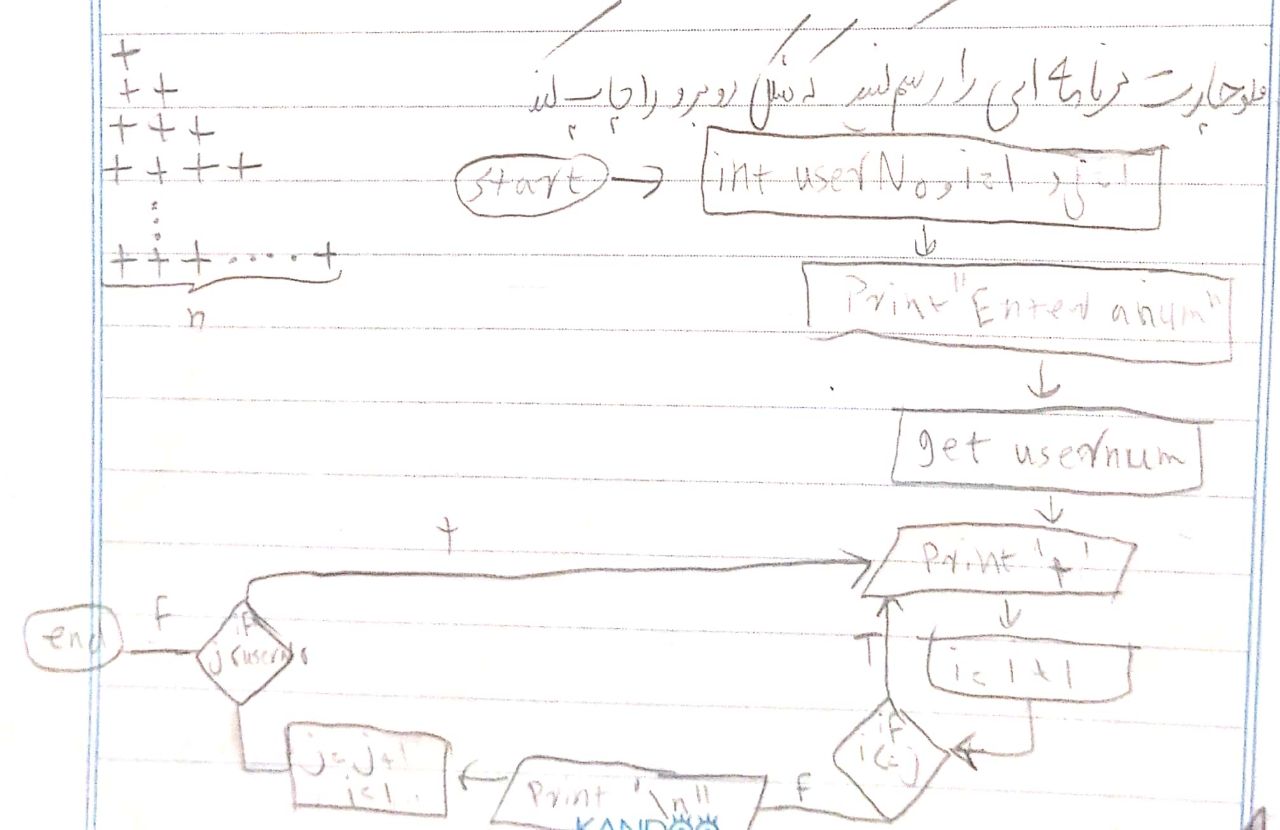 +
+ +
+ + +
+ + + +
⋮
+ + + ..... +
n
فلوچارت برنامه ایی را رسم کنید که شکل روبرو را چاپ کند
start
int userNo, i=1, j=1
Print "Enter a num"
get usernum
Print "+"
i=i+1
if i<=j
T
F
Print "\n"
j=j+1
i=1
if j<userNo
T
F
end
KANDOO